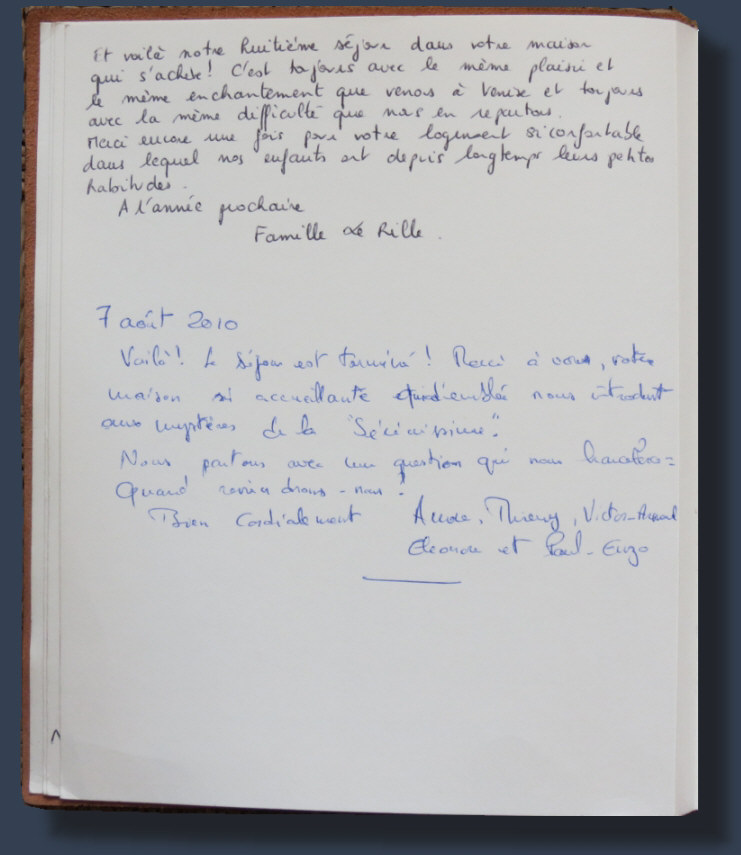 Et voilà notre huitième séjour dans votre maison
qui s'achève! C'est toujours avec le même plaisir et
le même enchantement que venons à Venise et toujours
avec la même difficulté que nous en repartons.
Merci encore une fois pour votre logement si confortable
dans lequel nos enfants ont depuis longtemps leurs petites
habitudes.
A l'année prochaine
Famille Le Rille.
7 août 2010
Voilà! Le séjour est terminé! Merci à vous, votre
maison si accueillante qui d'emblée nous introduit
aux mystères de la "Sérénissime".
Nous partons avec une question qui nous
Quand reviendrons-nous?
Bien Cordialement Aurore, Thierry, Victor-
Eleonore et Paul-Enzo